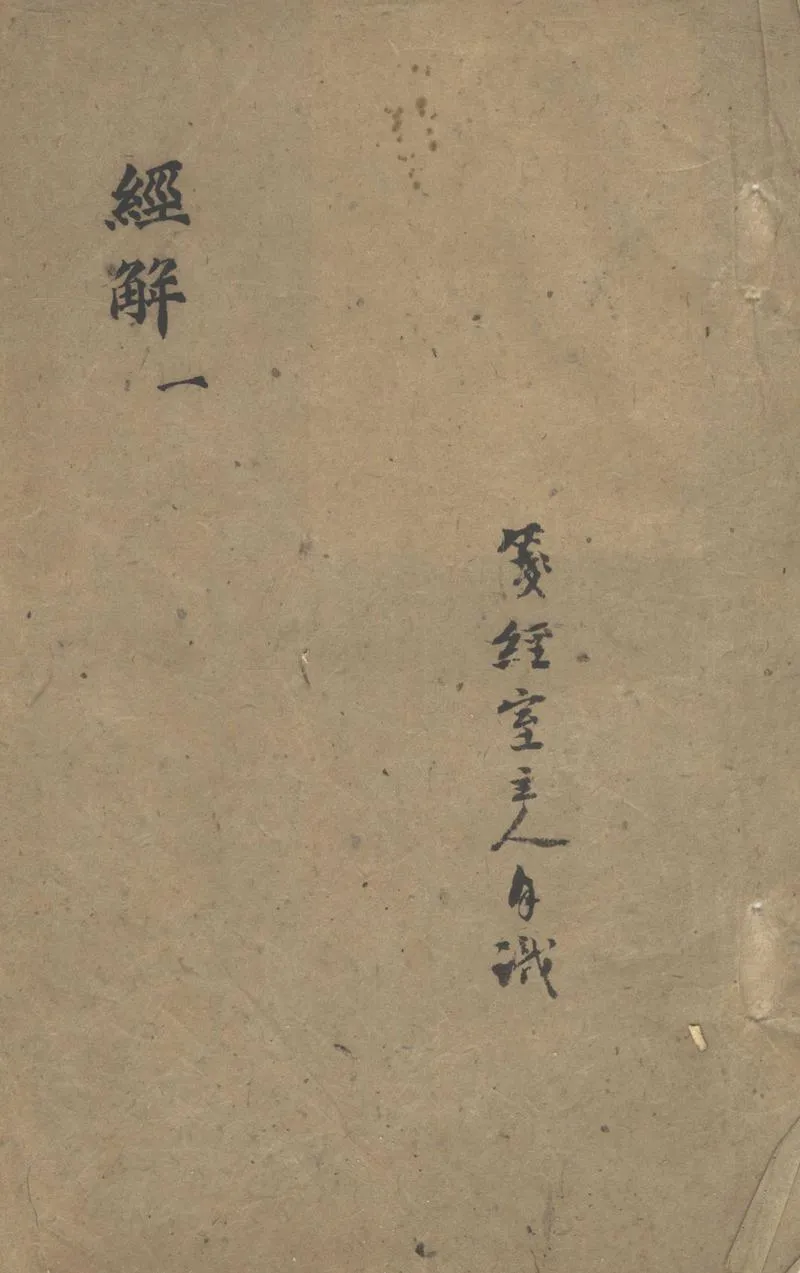 箋經室主人自識
經解一